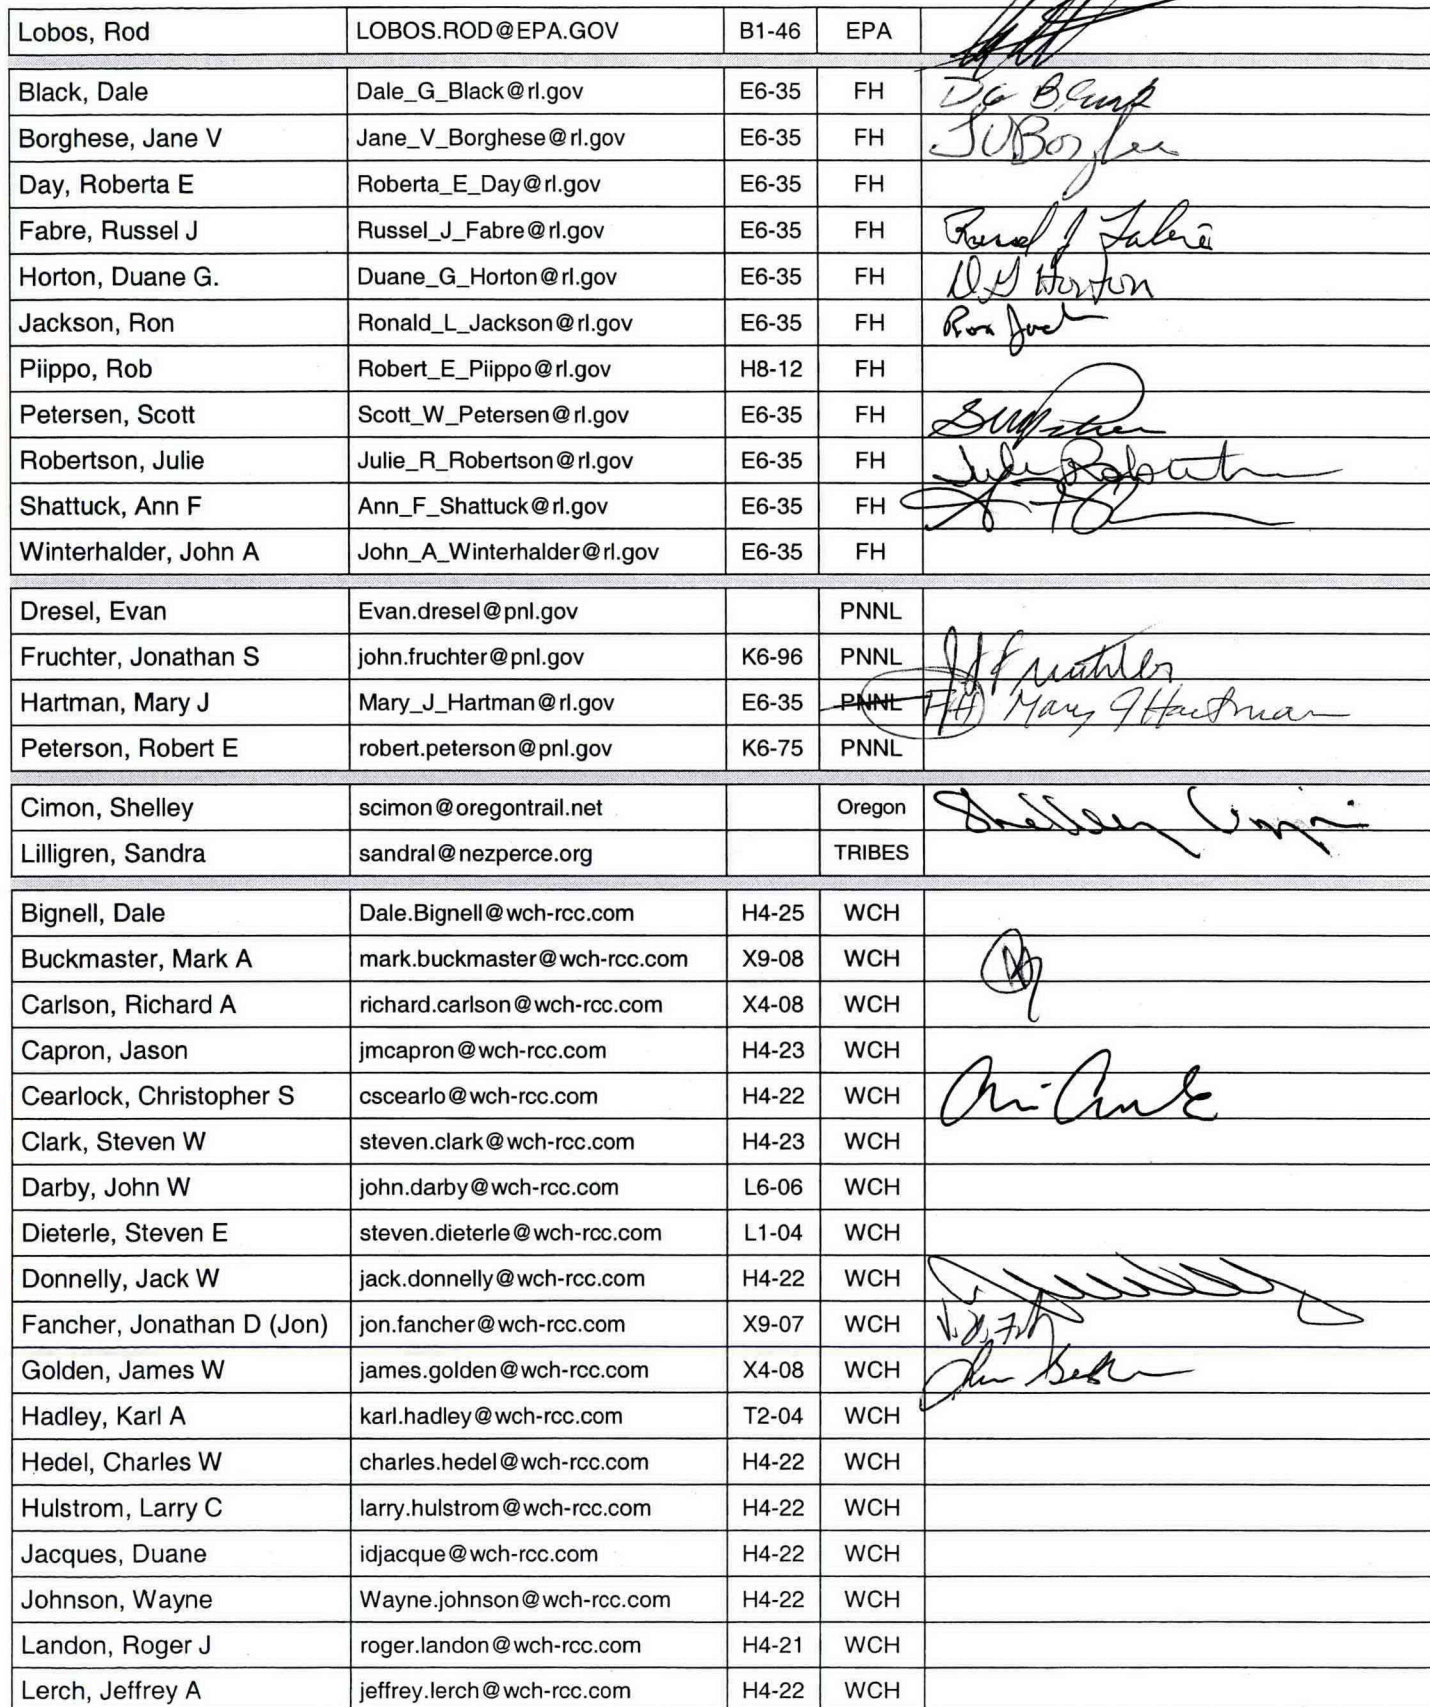 Lobos, Rod LOBOS.ROD@EPA.GOV B1-46 EPA
Black, Dale Dale_G_Black@rl.gov E6-35 FH
Borghese, Jane V Jane_V_Borghese@rl.gov E6-35 FH
Day, Roberta E Roberta_E_Day@rl.gov E6-35 FH
Fabre, Russel J Russel_J_Fabre@rl.gov E6-35 FH Russel J Fabre
Horton, Duane G. Duane_G_Horton@rl.gov E6-35 FH D G Horton
Jackson, Ron Ronald_L_Jackson@rl.gov E6-35 FH Ron
Piippo, Rob Robert_E_Piippo@rl.gov H8-12 FH
Petersen, Scott Scott_W_Petersen@rl.gov E6-35 FH
Robertson, Julie Julie_R_Robertson@rl.gov E6-35 FH Julie Robertson
Shattuck, Ann F Ann_F_Shattuck@rl.gov E6-35 FH
Winterhalder, John A John_A_Winterhalder@rl.gov E6-35 FH
Dresel, Evan Evan.dresel@pnl.gov PNNL
Fruchter, Jonathan S john.fruchter@pnl.gov K6-96 PNNL
Hartman, Mary J Mary_J_Hartman@rl.gov E6-35 PNNL FH Mary J Hartman
Peterson, Robert E robert.peterson@pnl.gov K6-75 PNNL
Cimon, Shelley scimon@oregontrail.net Oregon Shelley Cimon
Lilligren, Sandra sandral@nezperce.org TRIBES
Bignell, Dale Dale.Bignell@wch-rcc.com H4-25 WCH
Buckmaster, Mark A mark.buckmaster@wch-rcc.com X9-08 WCH
Carlson, Richard A richard.carlson@wch-rcc.com X4-08 WCH
Capron, Jason jmcapron@wch-rcc.com H4-23 WCH
Cearlock, Christopher S cscearlo@wch-rcc.com H4-22 WCH
Clark, Steven W steven.clark@wch-rcc.com H4-23 WCH
Darby, John W john.darby@wch-rcc.com L6-06 WCH
Dieterle, Steven E steven.dieterle@wch-rcc.com L1-04 WCH
Donnelly, Jack W jack.donnelly@wch-rcc.com H4-22 WCH
Fancher, Jonathan D (Jon) jon.fancher@wch-rcc.com X9-07 WCH
Golden, James W james.golden@wch-rcc.com X4-08 WCH
Hadley, Karl A karl.hadley@wch-rcc.com T2-04 WCH
Hedel, Charles W charles.hedel@wch-rcc.com H4-22 WCH
Hulstrom, Larry C larry.hulstrom@wch-rcc.com H4-22 WCH
Jacques, Duane idjacque@wch-rcc.com H4-22 WCH
Johnson, Wayne Wayne.johnson@wch-rcc.com H4-22 WCH
Landon, Roger J roger.landon@wch-rcc.com H4-21 WCH
Lerch, Jeffrey A jeffrey.lerch@wch-rcc.com H4-22 WCH